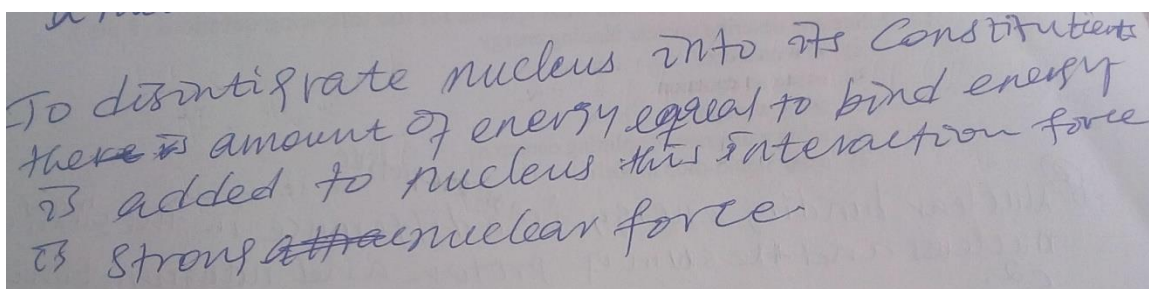 To disintigrate nucleus into its Constitutents
the amount of energy equal to bind energy
is added to nucleus this interaction force
is strong nuclear force.